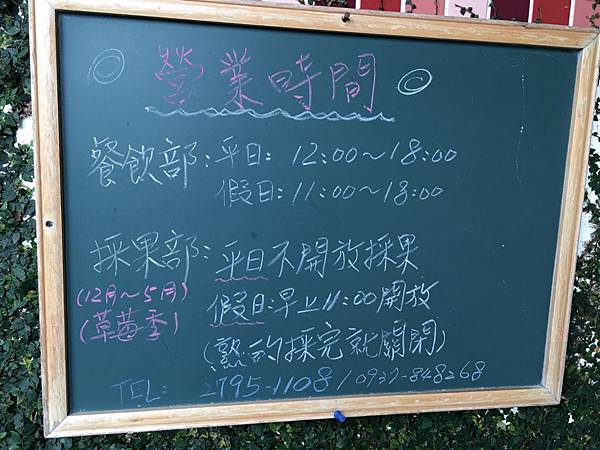 ◎ 營業時間 ◎
餐飲部:平日:12:00~18:00
假日:11:00~18:00
採果部:平日不開放採果
(12月~5月) 假日:早上11:00開放
(草莓季) (熟的採完就關閉)
TEL: 2795-1108/0937-848268